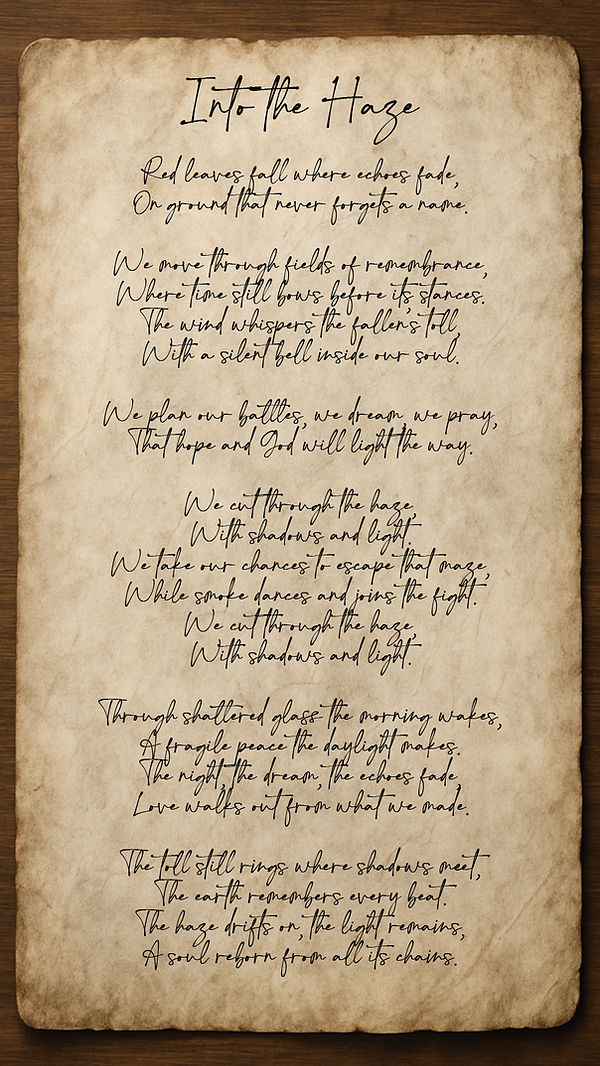 Into the Haze
Red leaves fall where echoes fade,
On ground that never forgets a name.
We move through fields of remembrance,
Where time still bows before its stances.
The wind whispers the fallen's toll,
With a silent bell inside our soul.
We plan our battles, we dream, we pray,
That hope and God will light the way.
We cut through the haze,
With shadows and light.
We take our chances to escape that maze,
While smoke dances and joins the fight.
We cut through the haze,
With shadows and light.
Through shattered glass the morning wakes,
A fragile peace the daylight makes.
The night, the dream, the echoes fade,
Love walks out from what we made.
The toll still rings where shadows meet,
The earth remembers every beat.
The haze drifts on, the light remains,
A soul reborn from all its chains.